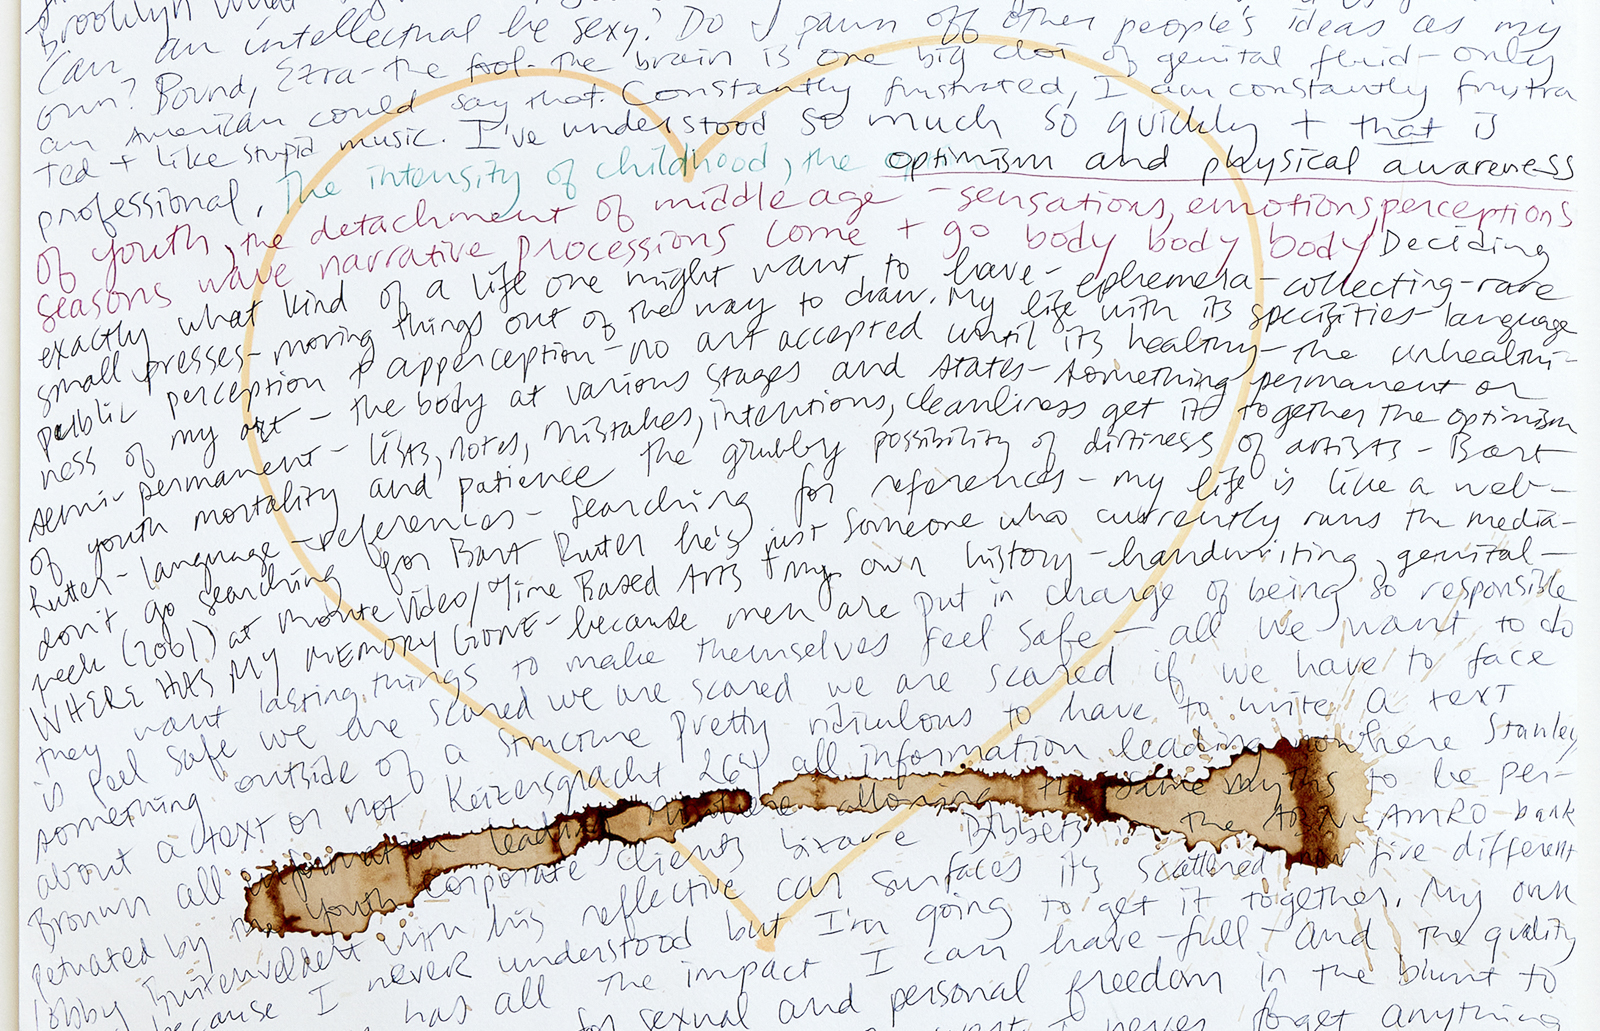 Brooklyn what
Can an intellectual be sexy? Do I pawn off other people's ideas as my
own? Pound, Ezra-the fool-the brain is one big clot of genital fluid-only
an American could say that. Constantly frustrated, I am constantly frustra
ted + like stupid music. I've understood so much so quickly + that is
professional. The intensity of childhood, the optimism and physical awareness
of youth, the detachment of middle age - sensations, emotions, perceptions
seasons wave narrative processions come + go body body body Deciding
exactly what kind of a life one might want to have - ephemera-collecting-rare
small presses-moving things out of the way to draw. My life with its specifities-language
public perception + apperception-no art accepted until its healthy-the unhealthi-
ness of my art - the body at various stages and states-something permanent or
semi-permanent- lists, notes, mistakes, intentions, cleanliness get it together the optimism
of youth mortality and patience the grubby possibility of dirtiness of artists - Bart
Rutten - language - references - searching for references - my life is like a web-
don't go searching for Bart Rutten he's just someone who currently runs the media-
peek (2001) at Monte Video/Time Based Arts + my own history-handwriting, genital-
WHERE HAS MY MEMORY GONE-because men are put in charge of being so responsible
they want lasting things to make themselves feel safe - all we want to do
is feel safe we are scared we are scared we are scared if we have to face
something outside of a structure Pretty ridiculous to have to write a text
about a text or not Keizersgracht 264 all information leading nowhere Stanley
Brouwn all information leading nowhere allowing the same myths to be per-
petuated by the youth corporate clients bizarre Bobbets in the ABN-AMRO bank
lobby Buitenveldert with his reflective car surfaces its scattered in five different
because I never understood but I'm going to get it together. My own
has all the impact I can have-full-and the quality
for sexual and personal freedom in the blunt to
I never forget anything